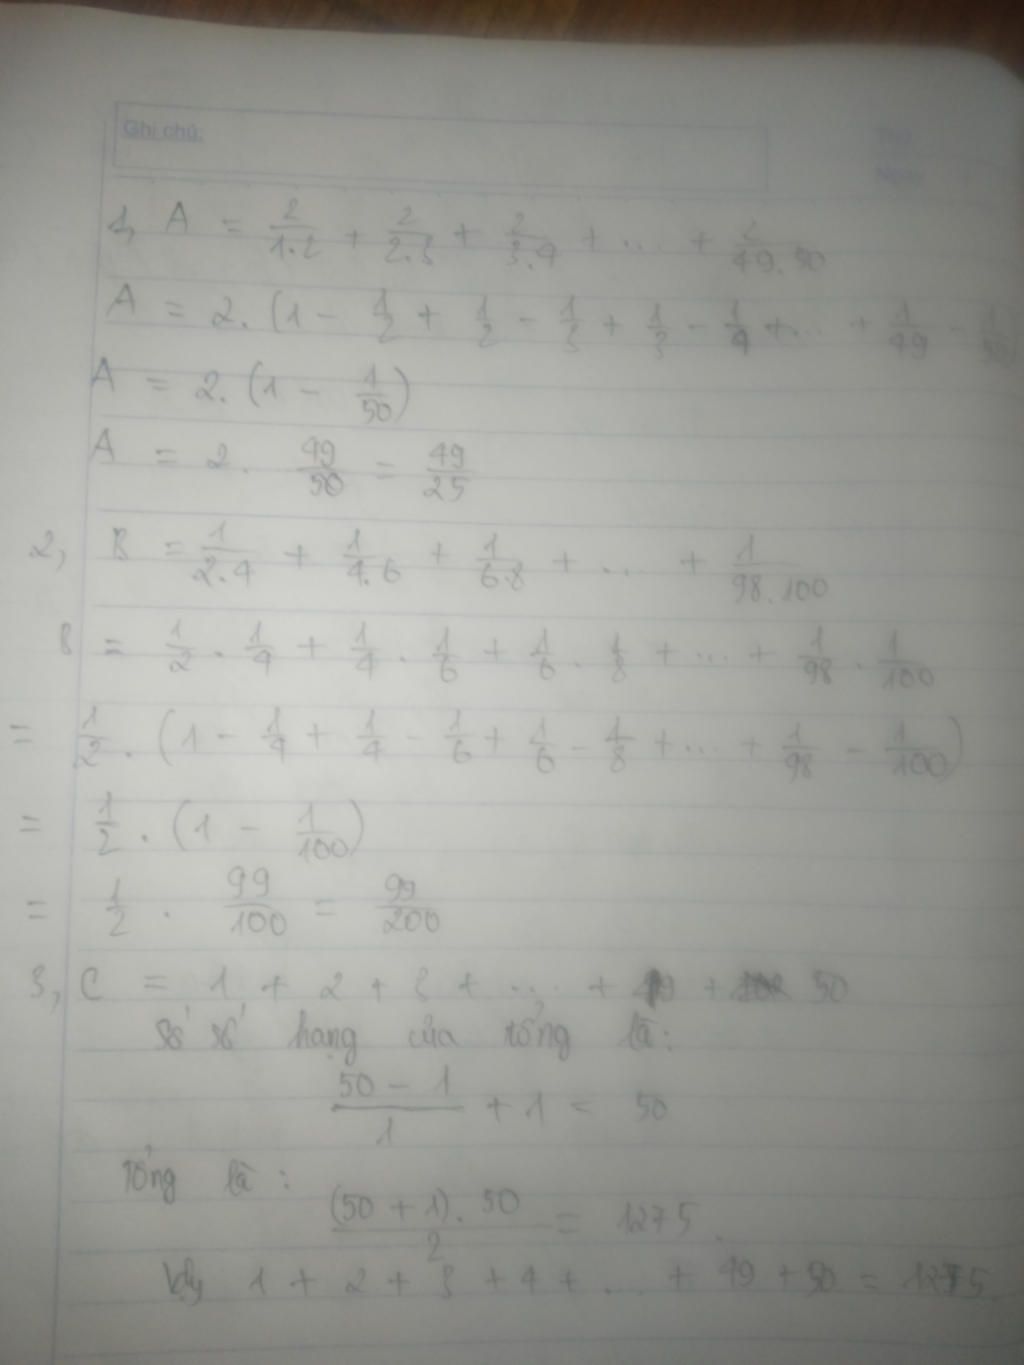 Ghi chú:
1, A = 2/1.2 + 2/2.3 + 2/3.4 + ... + 2/49.50
A = 2. (1 - 1/2 + 1/2 - 1/3 + 1/3 - 1/4 + ... + 1/49 - 1/50)
A = 2. (1 - 1/50)
A = 2. 49/50 = 49/25
2, B = 1/2.4 + 1/4.6 + 1/6.8 + ... + 1/98.100
B = 1/2 . 1/4 + 1/4 . 1/6 + 1/6 . 1/8 + ... + 1/98 . 1/100
= 1/2 . (1 - 1/4 + 1/4 - 1/6 + 1/6 - 1/8 + ... + 1/98 - 1/100)
= 1/2 . (1 - 1/100)
= 1/2 . 99/100 = 99/200
3, C = 1 + 2 + 3 + ... + 49 + 50
Số số hạng của tổng là:
50 - 1/1 + 1 = 50
Tổng là:
(50 + 1). 50/2 = 1275.
Vậy 1 + 2 + 3 + 4 + ... + 49 + 50 = 1275.